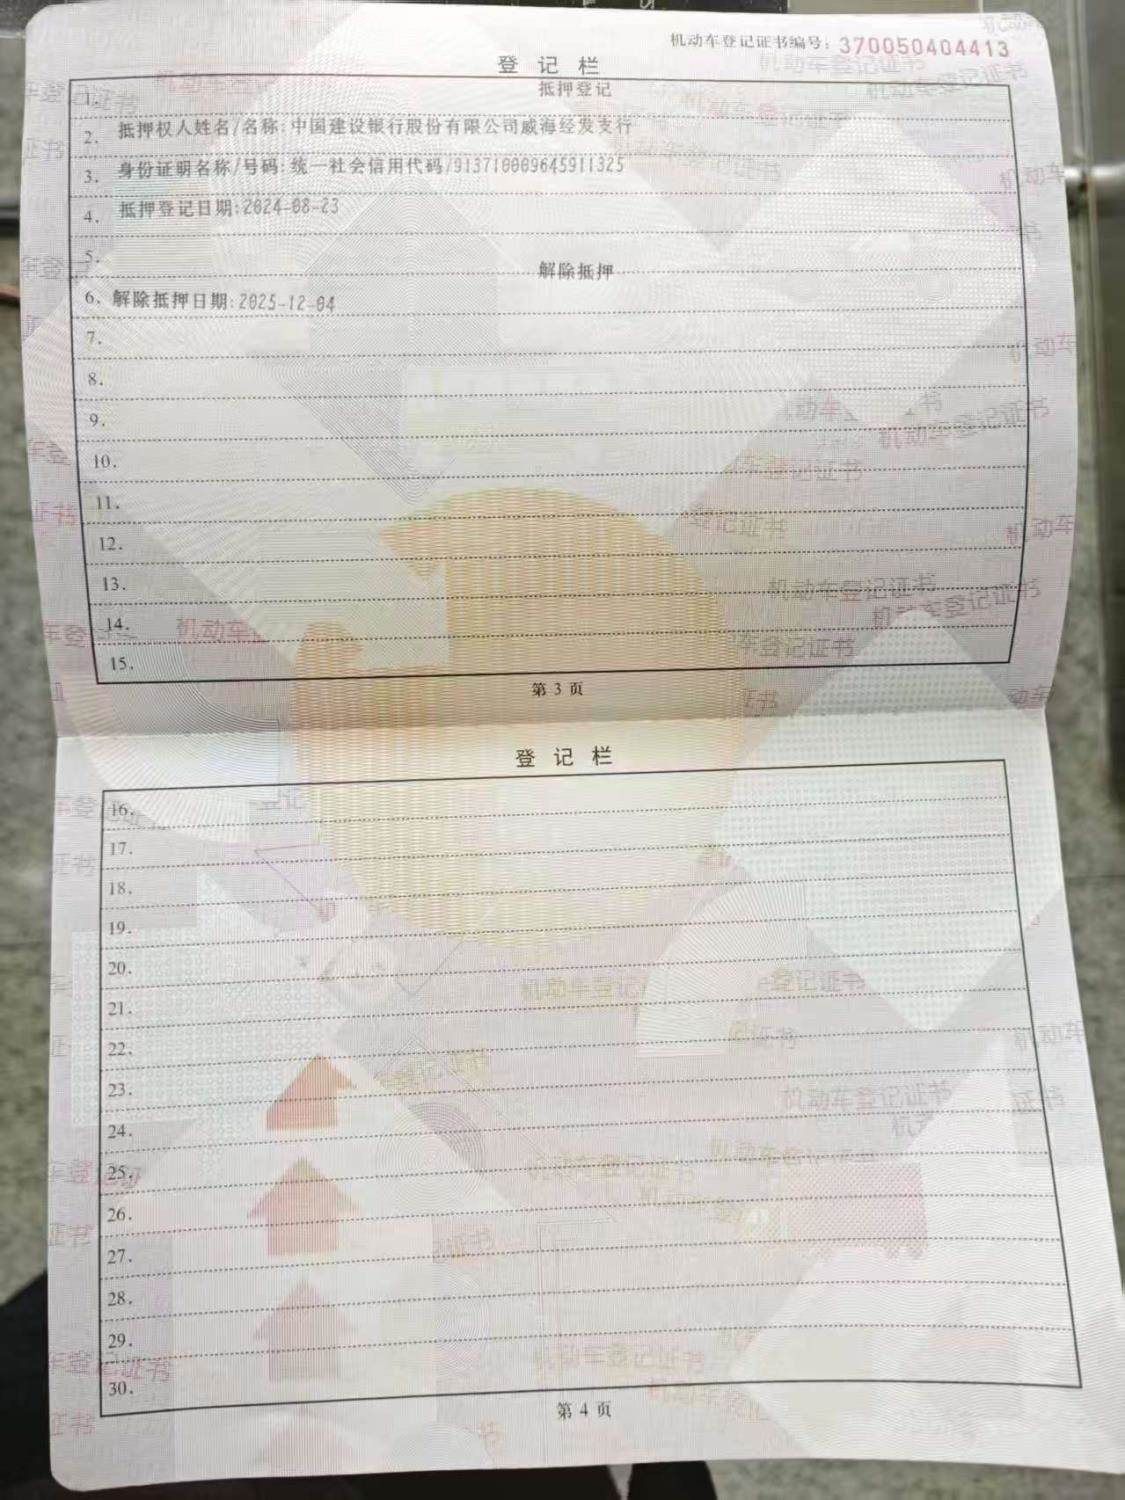 机动车登记证书编号：370050404413
登 记 栏
1. 抵押登记
2. 抵押权人姓名/名称:中国建设银行股份有限公司威海经发支行
3. 身份证明名称/号码:统一社会信用代码/913710009645911325
4. 抵押登记日期:2024-08-23
5. 解除抵押
6. 解除抵押日期:2025-12-04
7.
8.
9.
10.
11.
12.
13.
14.
15.
第 3 页
登 记 栏
16.
17.
18.
19.
20.
21.
22.
23.
24.
25.
26.
27.
28.
29.
30.
第 4 页